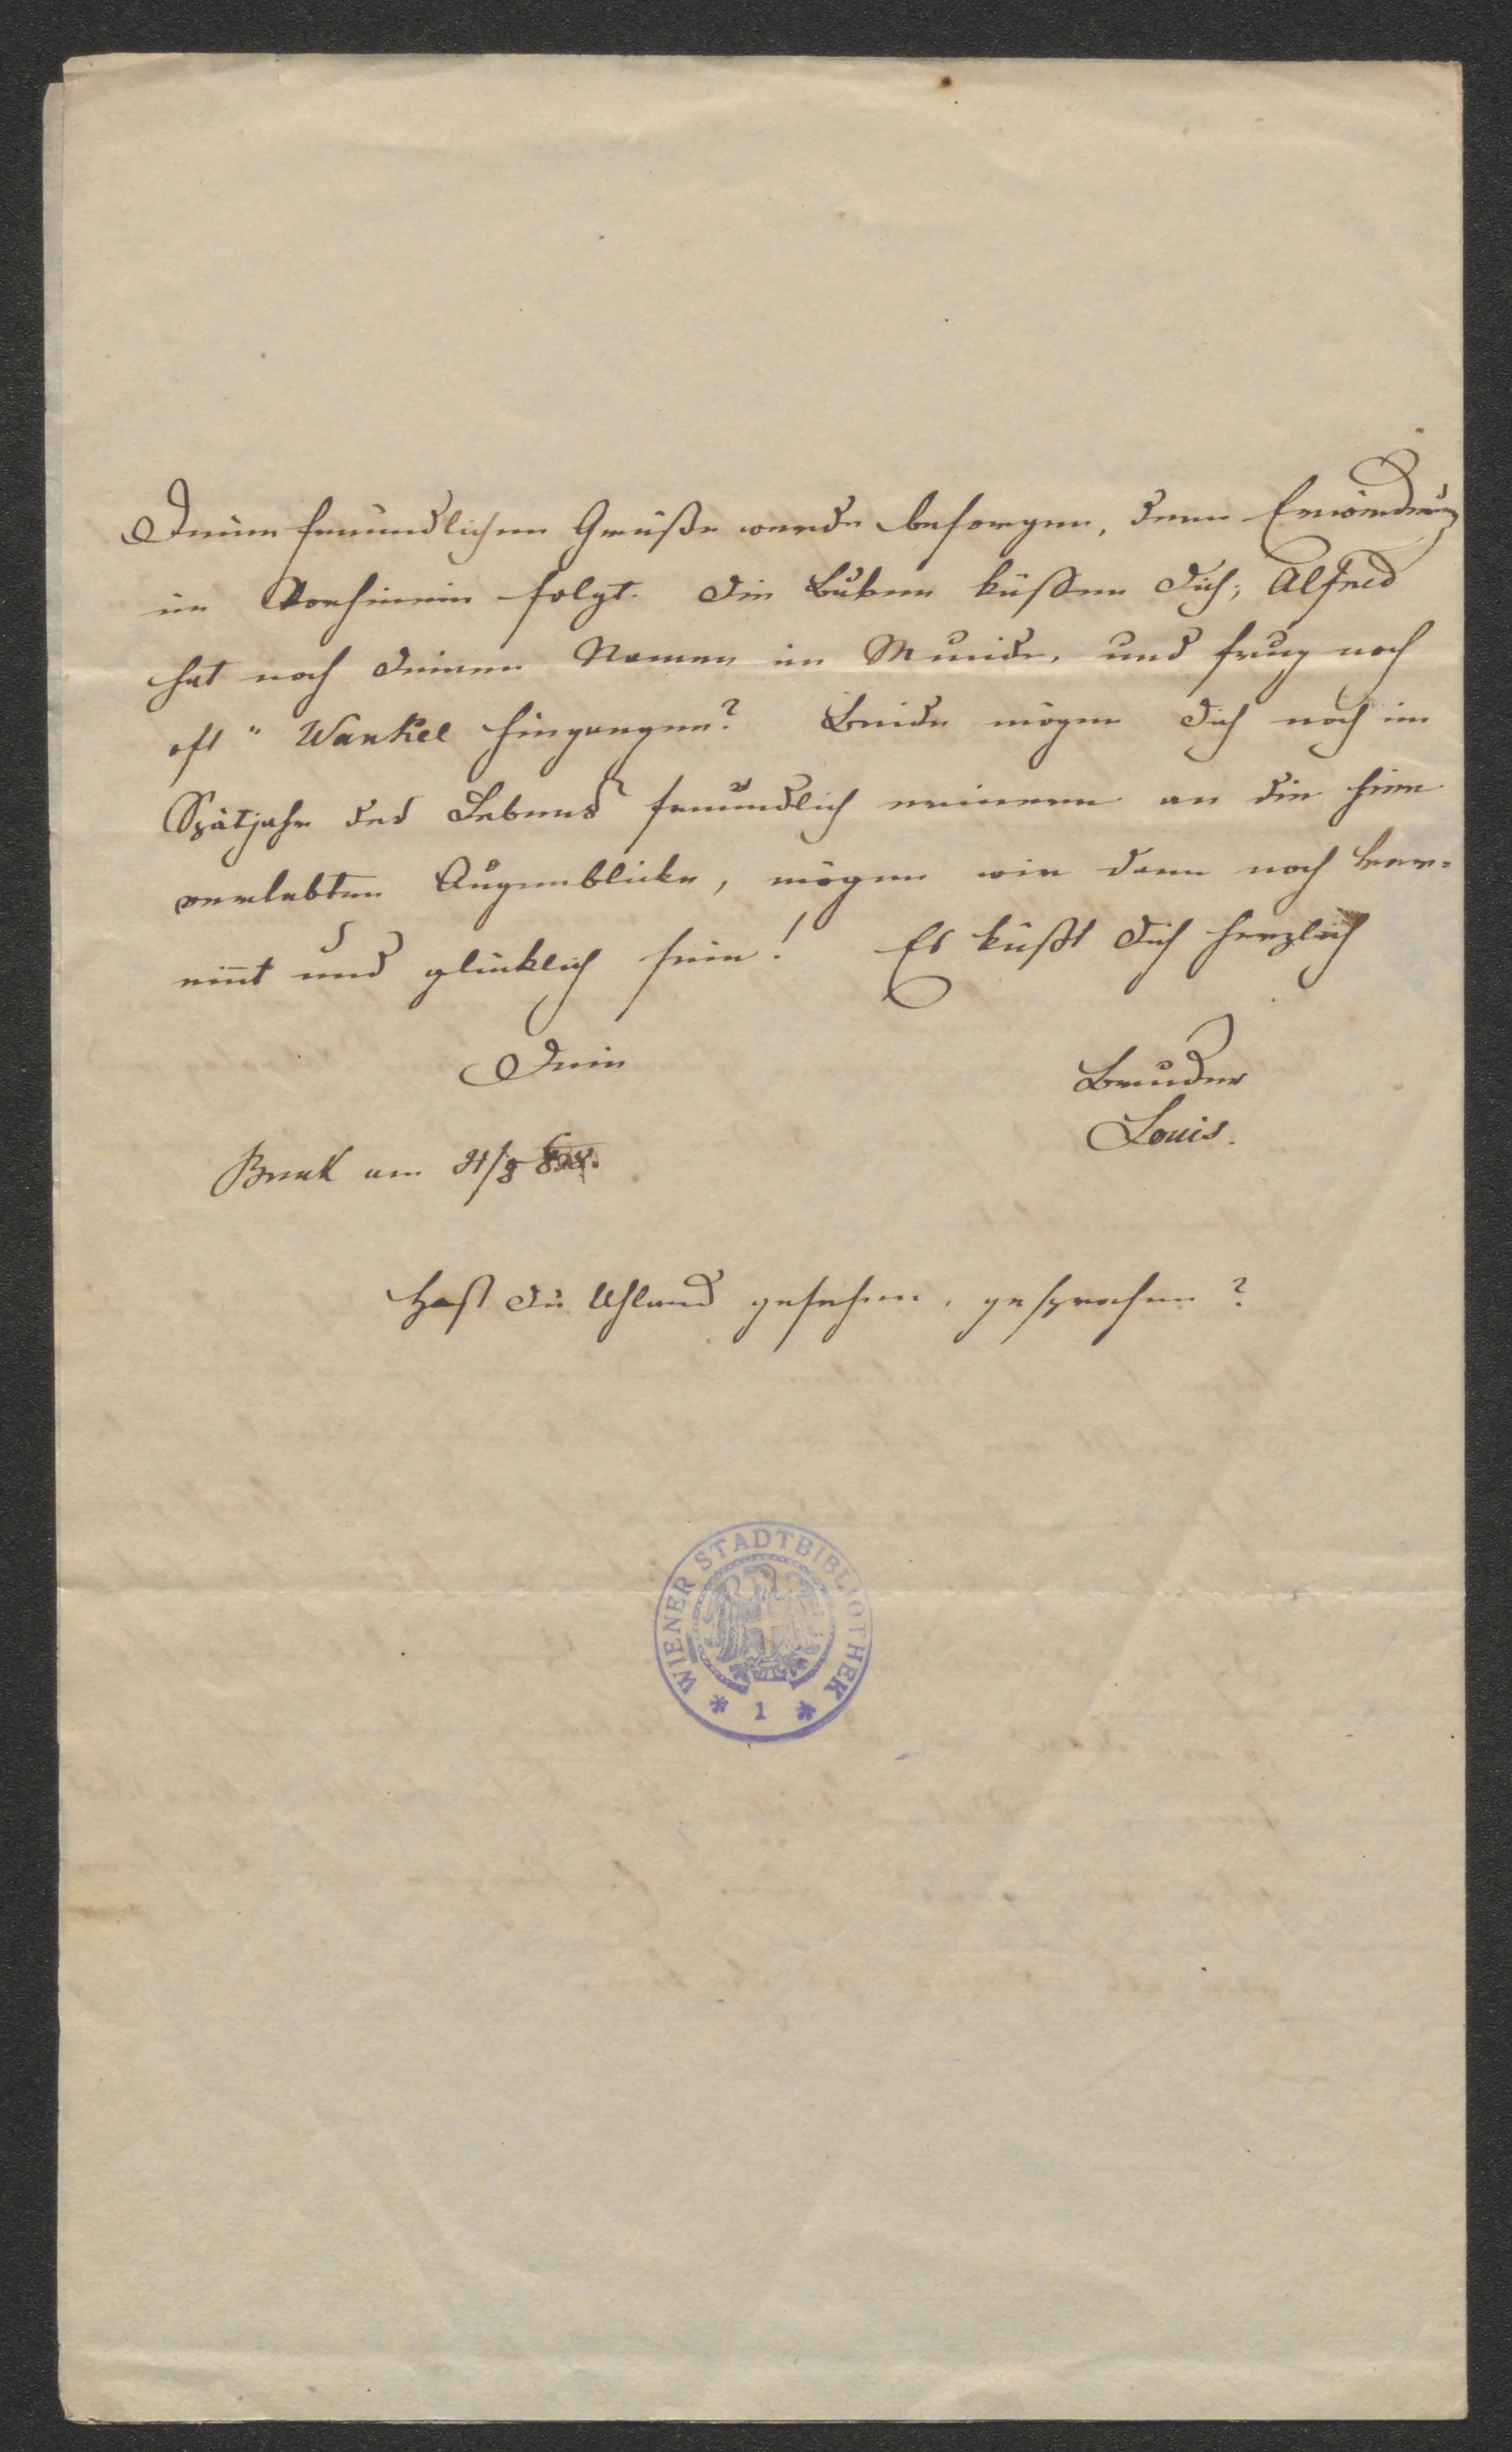 Deine freundlichen Grüße werde besorgen, deren Erwiederung
im Vorhinein folgt. Die Buben küssen Dich; Alfred
hat noch Deinen Namen im Munde, und frug noch
oft " Wankel hingangen? Beide mögen Dich noch im
Spätjahr des Lebens freundlich erinnern an die hier
verlebten Augenblicke, mögen wir dann noch
und glücklich sein! Es küßt Dich herzlich
Dein
Bruder
Louis.
Bruck am
Hast Du Uhland gesehen, gesprochen?
WIENER STADTBIBLIOTHEK
* 1 *